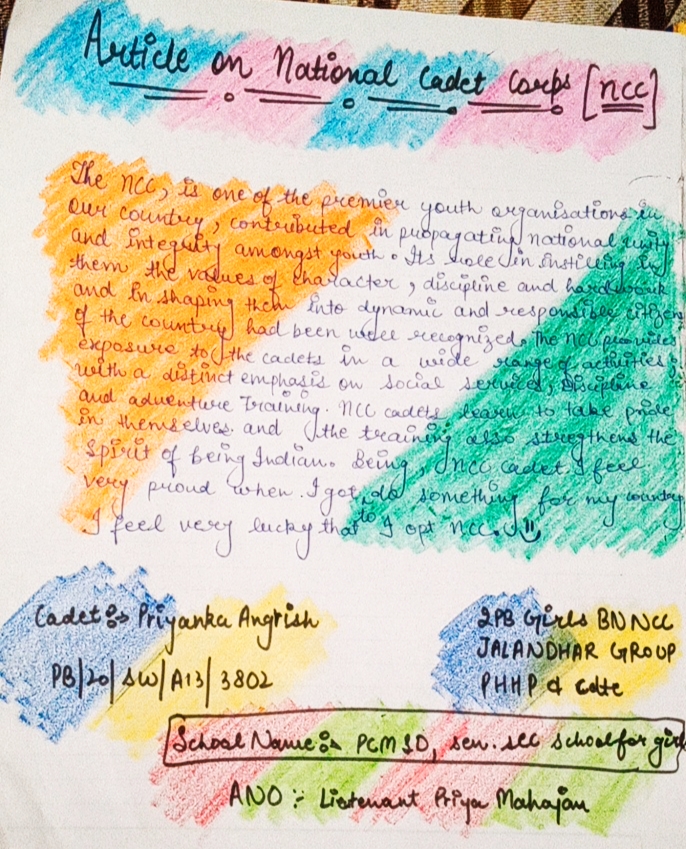 Article on National Cadet Corps [NCC]
The NCC, is one of the premier youth organisations in
our country, contributed in propagating national unity
and integrity amongst youth. Its role in instilling in
them the values of character, discipline and hardwork
and in shaping them into dynamic and responsible citizen
of the country had been well recognized. The NCC provides
exposure to the cadets in a wide range of activities
with a distinct emphasis on social services, Discipline
and adventure Training. NCC cadets learn to take pride
in themselves and the training also stregthens the
Spirit of being Indian. Being, NCC cadet I feel
very proud when I got to do something for my country
I feel very lucky that I opt NCC.
Cadet:- Priyanka Angrish
PB/20/SW/A13/3802
2PB Girls BN NCC
JALANDHAR GROUP
PHHP & Cdte
School Name:- PCM SD, sen. sec school for girl
ANO :- Lietenant Priya Mahajan